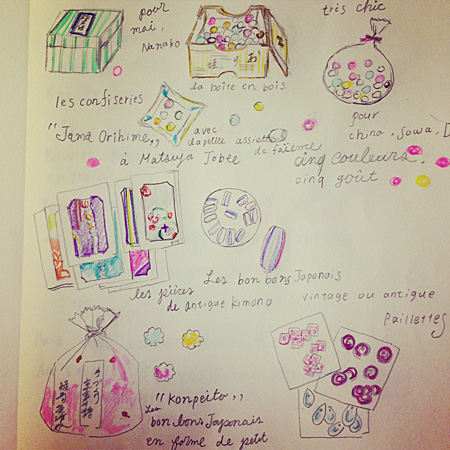 pour
mai,
Nanako
très chic
la boîte en bois
les confiseries
"Tama Orihime,,
à Matsuya Tobee
avec
la petite assiette
de faïence
pour
china, Sowa,
cinq couleurs.
cinq goût
les pièces
de antique kimono
Les bon bons Japonais
vintage ou antique
Paillettes
"Konpeito,,
Les
bon bons Japonais
en forme de petit